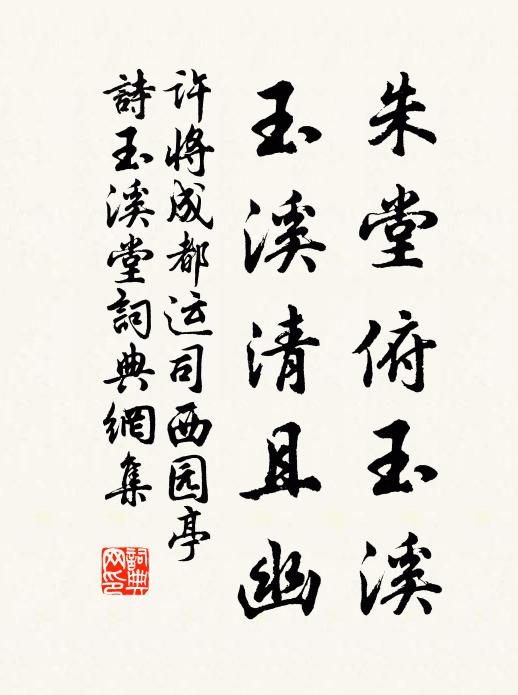 朱堂俯玉溪
玉溪清且幽
许将成都运司西园亭
詩玉溪堂詞典網集
詞典网印